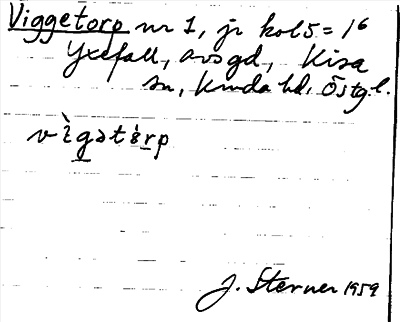 Viggetorp nr 1, jr kol 5 = 16
Yxefall, avsgd, Kisa
sn, Kinda hd. Östg. l.
J. Sterner 1959